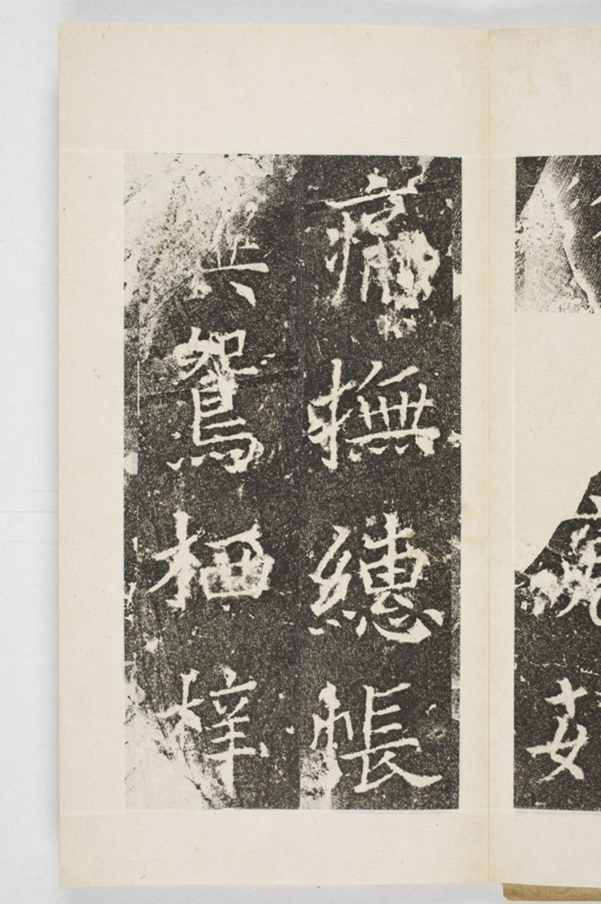 痛撫繐帳
共鴛栖梓